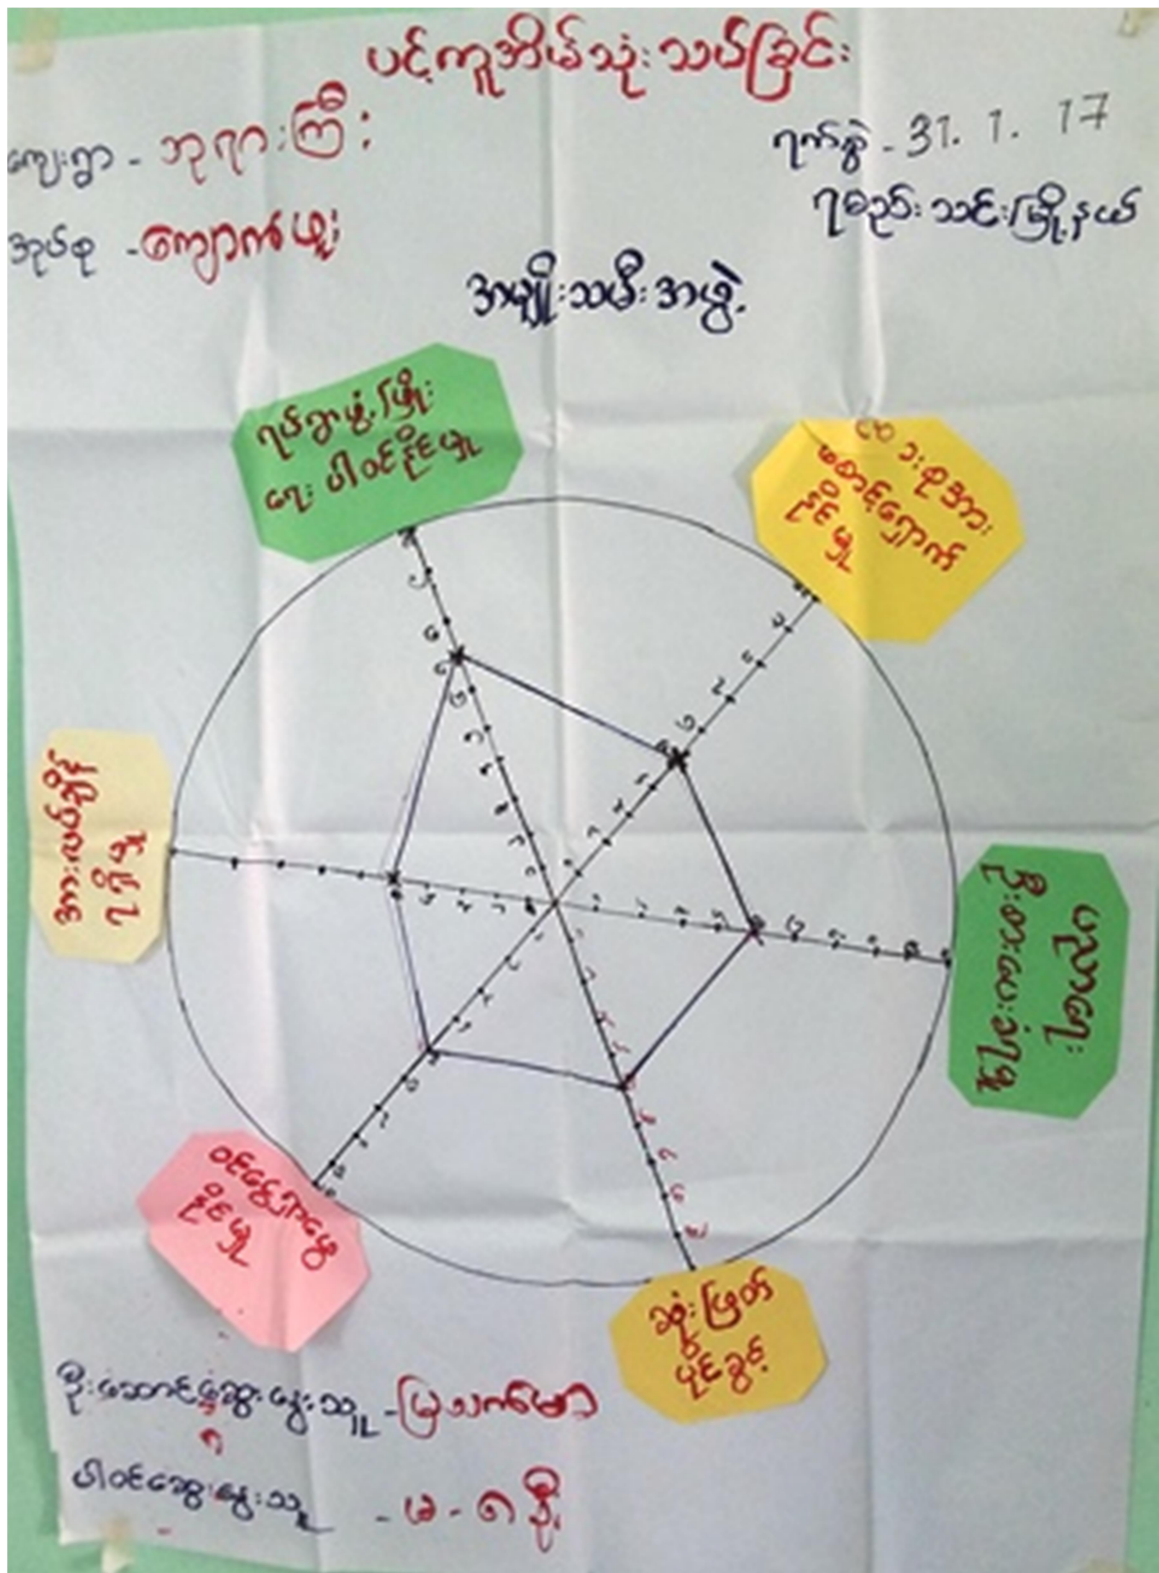 ပင့်ကူအိမ်သုံးသပ်ခြင်း
ကျေးရွာ - ဘုရားကြီး
ရက်စွဲ - 31. 1. 17
အုပ်စု - ကျောက်ဖျူး
ရမည်းသင်းမြို့နယ်
အမျိုးသမီးအဖွဲ့
ရပ်ရွာဖွံ့ဖြိုး
ရေး ပါဝင်နိုင်မှု
မိသားစုအား
စောင့်ရှောက်
နိုင်မှု
အားလပ်ချိန်
ရရှိမှု
ပညာရေး
ဦးစားပေးခံရမှု
ဝင်ငွေရှာဖွေ
နိုင်မှု
ဆုံးဖြတ်
ပိုင်ခွင့်
ဦးဆောင်ဆွေးနွေးသူ - မြသက်မာ
ပါဝင်ဆွေးနွေးသူ - မ - ၈ ဦး